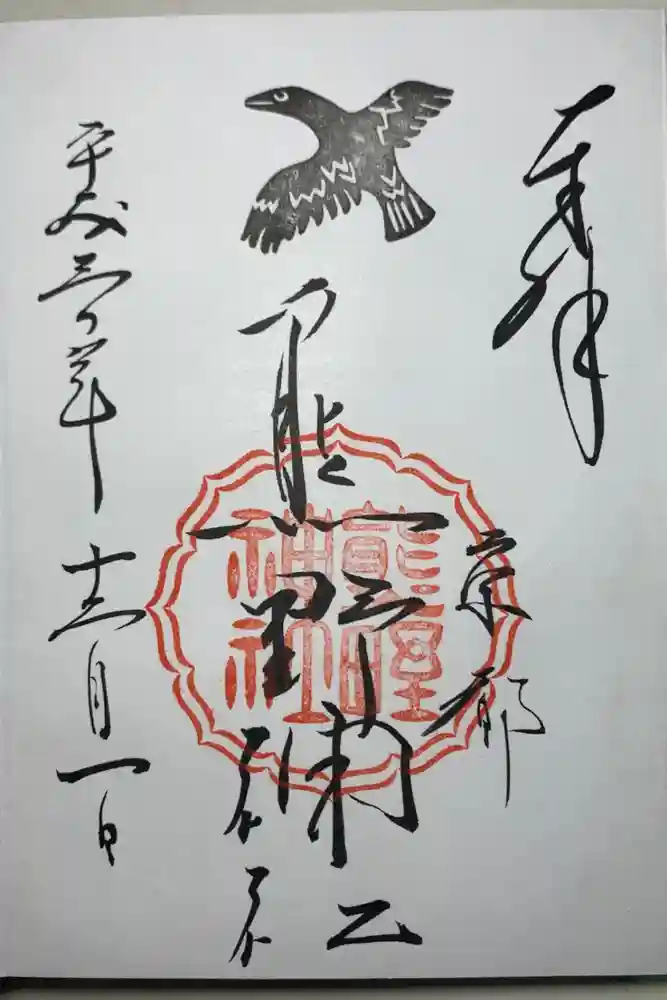 奉拝
京都
熊野神社
熊野
神社
平成三〇年 十二月一日